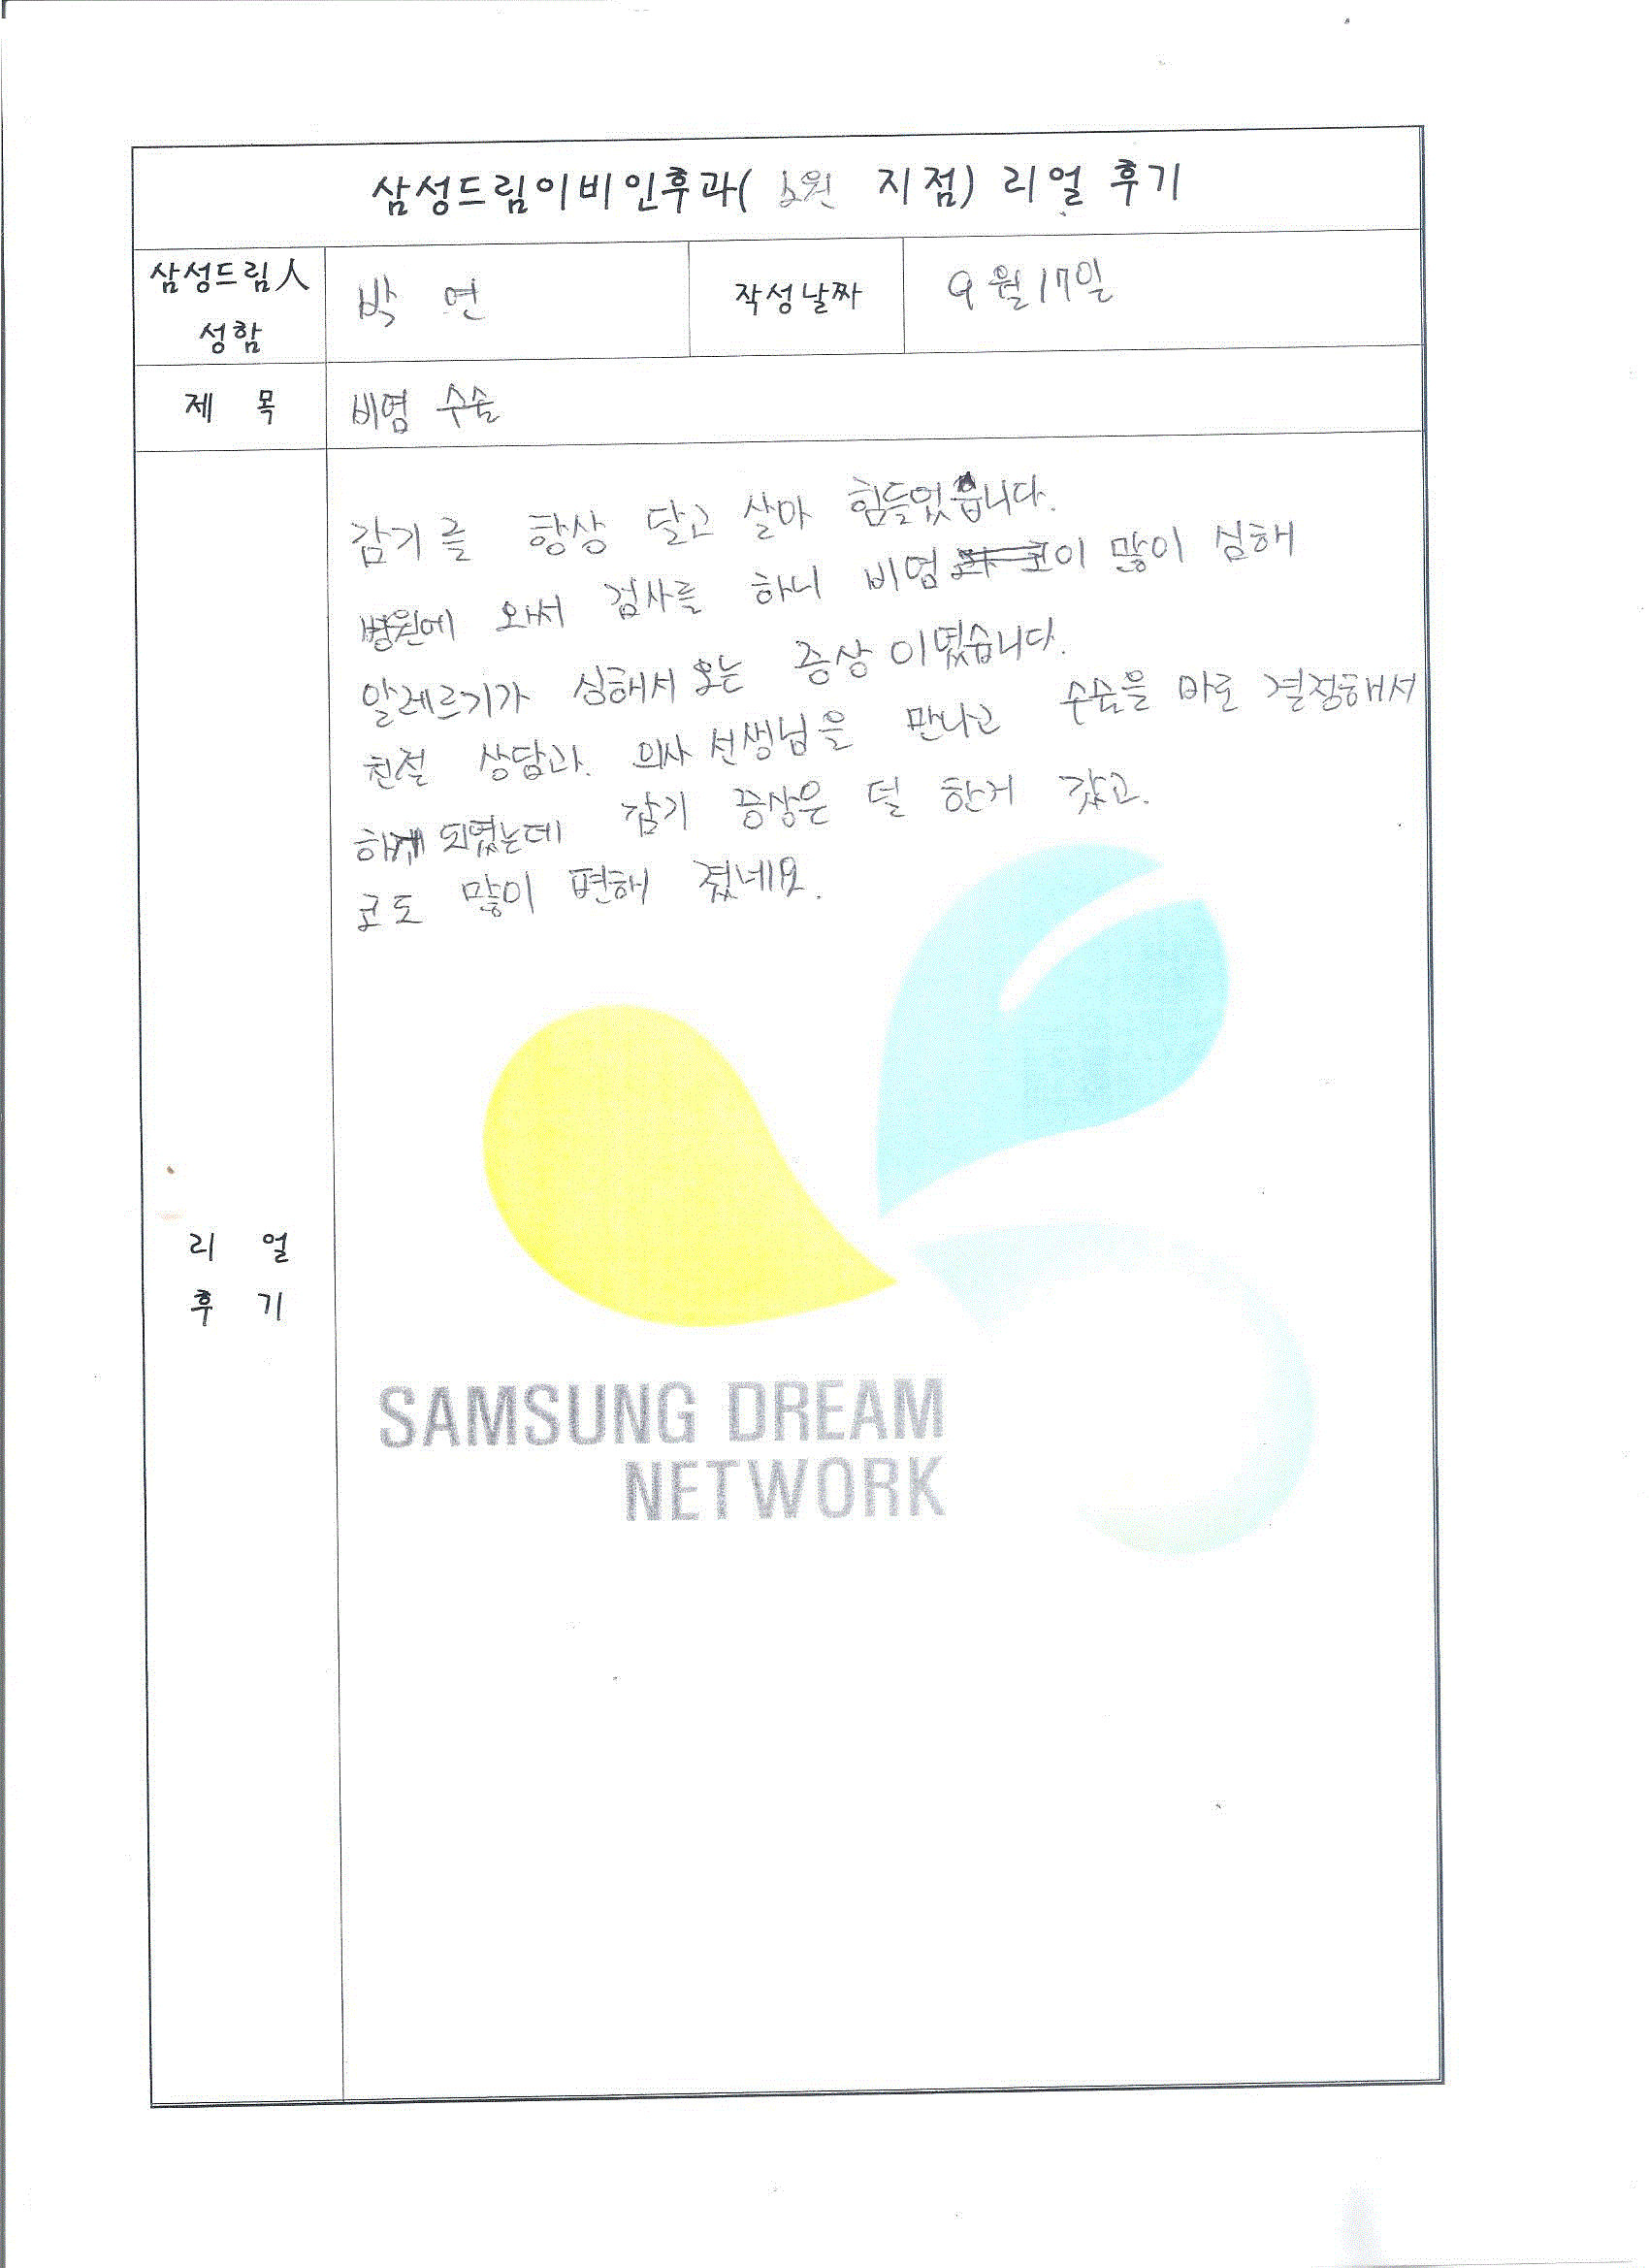 삼성드림이비인후과( 노원 지점) 리얼 후기
삼성드림人 성함
박 연
작성날짜
9월 17일
제 목
비염 수술
감기를 항상 달고 살아 힘들었습니다.
병원에 와서 검사를 하니 비염이 많이 심해
알레르기가 심해서 오는 증상이였습니다.
친절 상담과. 의사 선생님을 만나고 수술을 바로 결정해서
하게 되였는데 감기 증상은 덜 한거 갔고.
코도 많이 편해 졌네요.
리 얼
후 기
SAMSUNG DREAM
NETWORK